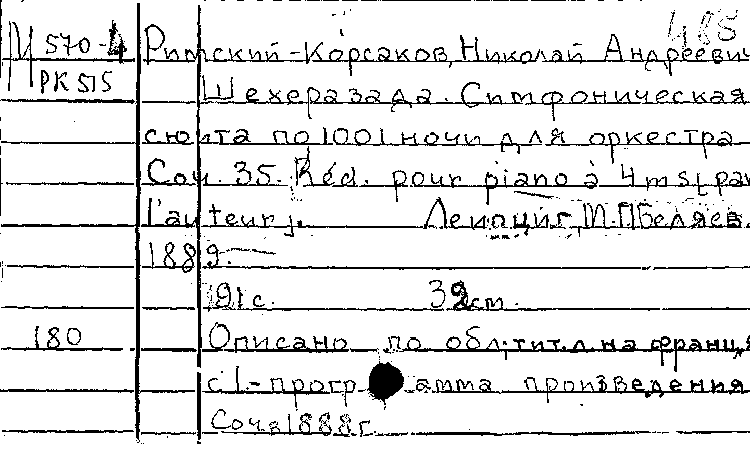 485
М 570-4 Римский-Корсаков, Николай Андреевич
РК 515 Шехеразада. Симфоническая
сюита по 1001 ночи для оркестра
Соч. 35. Réd. pour piano à 4 ms [par
l'auteur].  Лейпциг, М.П.Беляев.
1889.
191 с.  32 см.
180 Описано по обл; тит. л. на франц. я
с 1.- программа произведения
Соч. в 1888 г.